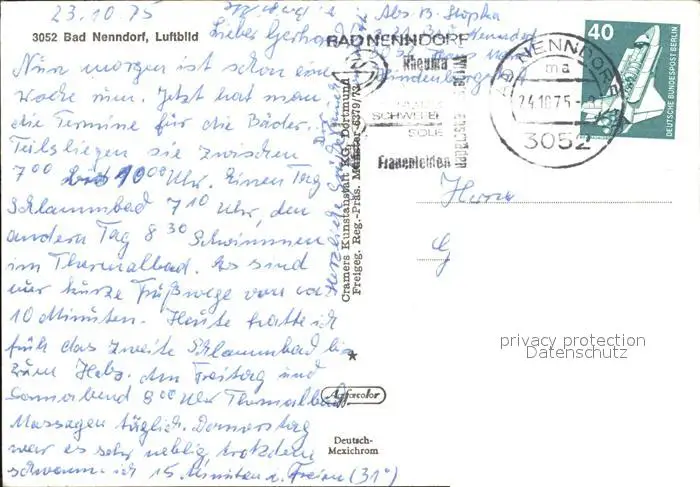 23.10.75
3052 Bad Nenndorf, Luftbild
Lieber Gerhard
Nun morgen ist schon eine
Woche um. Jetzt hat man
die Termine für die Bäder.
Teils liegen sie zwischen
7 00 bis 10 00 Uhr. Einen Tag
Schlammbad 7 10 Uhr, den
andern Tag 8 30 Schwimmen
im Thermalbad. Es sind
nur kurze Fußwege von ca
10 Minuten. Heute hatte ich
früh das zweite Schlammbad bis
zum Hals. Am Freitag und
Sonnabend 8 00 Uhr Thermalbad
Massagen täglich. Donnerstag
war es sehr neblig, trotzdem
schwamm ich 15 Minuten i. Freien (31°)
Herzliche Grüße
Abs. B. Skopka
3052 Bad Nenndorf
Haus
Hindenburg
BAD NENNDORF
Rheuma
SCHWEFEL
SOLE
Frauenleiden
BAD NENNDORF
ma
24.10.75-
3052
40
DEUTSCHE BUNDESPOST BERLIN
Cramers Kunstanstalt KG, Dortmund
Freigeg. Reg.-Präs. Münster 6379/73
Herrn
G
privacy protection
Datenschutz
Agfacolor
Deutsch-
Mexichrom